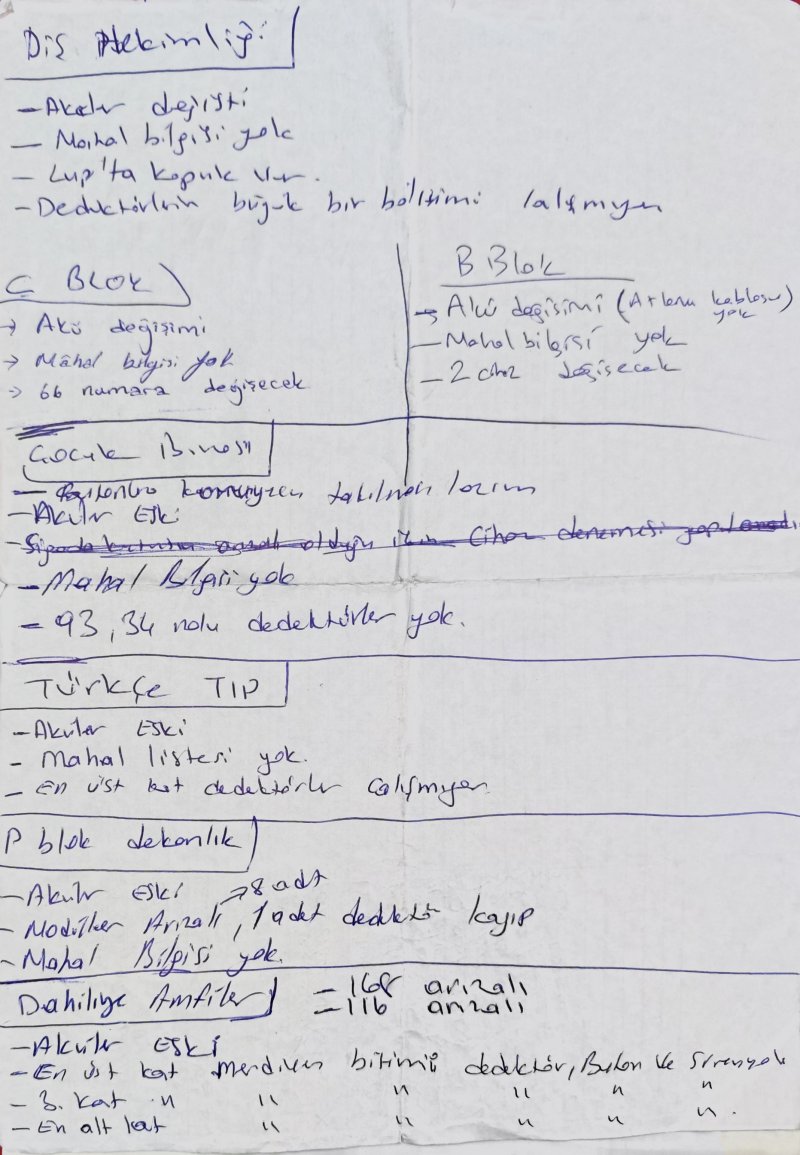 Diş Hekimliği
- Aküler değişti
- Mahal bilgisi yok
- Lup'ta kopuk var.
- Dedektörlerin büyük bir bölümü çalışmıyor
Ç BLOK
→ Akü değişimi
→ Mahal bilgisi yok
→ 66 numara değişecek
B Blok
→ Akü değişimi (Atlama kablosu yok)
- Mahal bilgisi yok
- 2 cihaz değişecek
Çocuk Binası
- takılması lazım
- Aküler Eski
- olduğu için Cihaz denemesi yapılamadı
- Mahal Bilgisi yok
- 93, 34 nolu dedektörler yok.
TÜRKÇE TIP
- Aküler Eski
- Mahal listesi yok.
- En üst kat dedektörler çalışmıyor.
P blok dekanlık
- Aküler Eski → 8 adt
- Modüller Arızalı, 1 adet dedektör kayıp
- Mahal Bilgisi yok.
Dahiliye Amfiler
- 168 arızalı
- 116 arızalı
- Aküler Eski
- En üst kat Merdiven bitimi dedektör, Buton ve Siren yok
- 3. kat " " " " " "
- En alt kat " " " " "